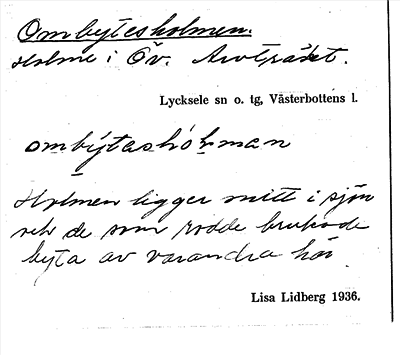 Ombytesholmen.
Holme i Öv. Avaträsket.
Lycksele sn o. tg, Västerbottens l.
ombýtashólman
Holmen ligger mitt i sjön
och de som rodde brukade
byta av varandra här.
Lisa Lidberg 1936.